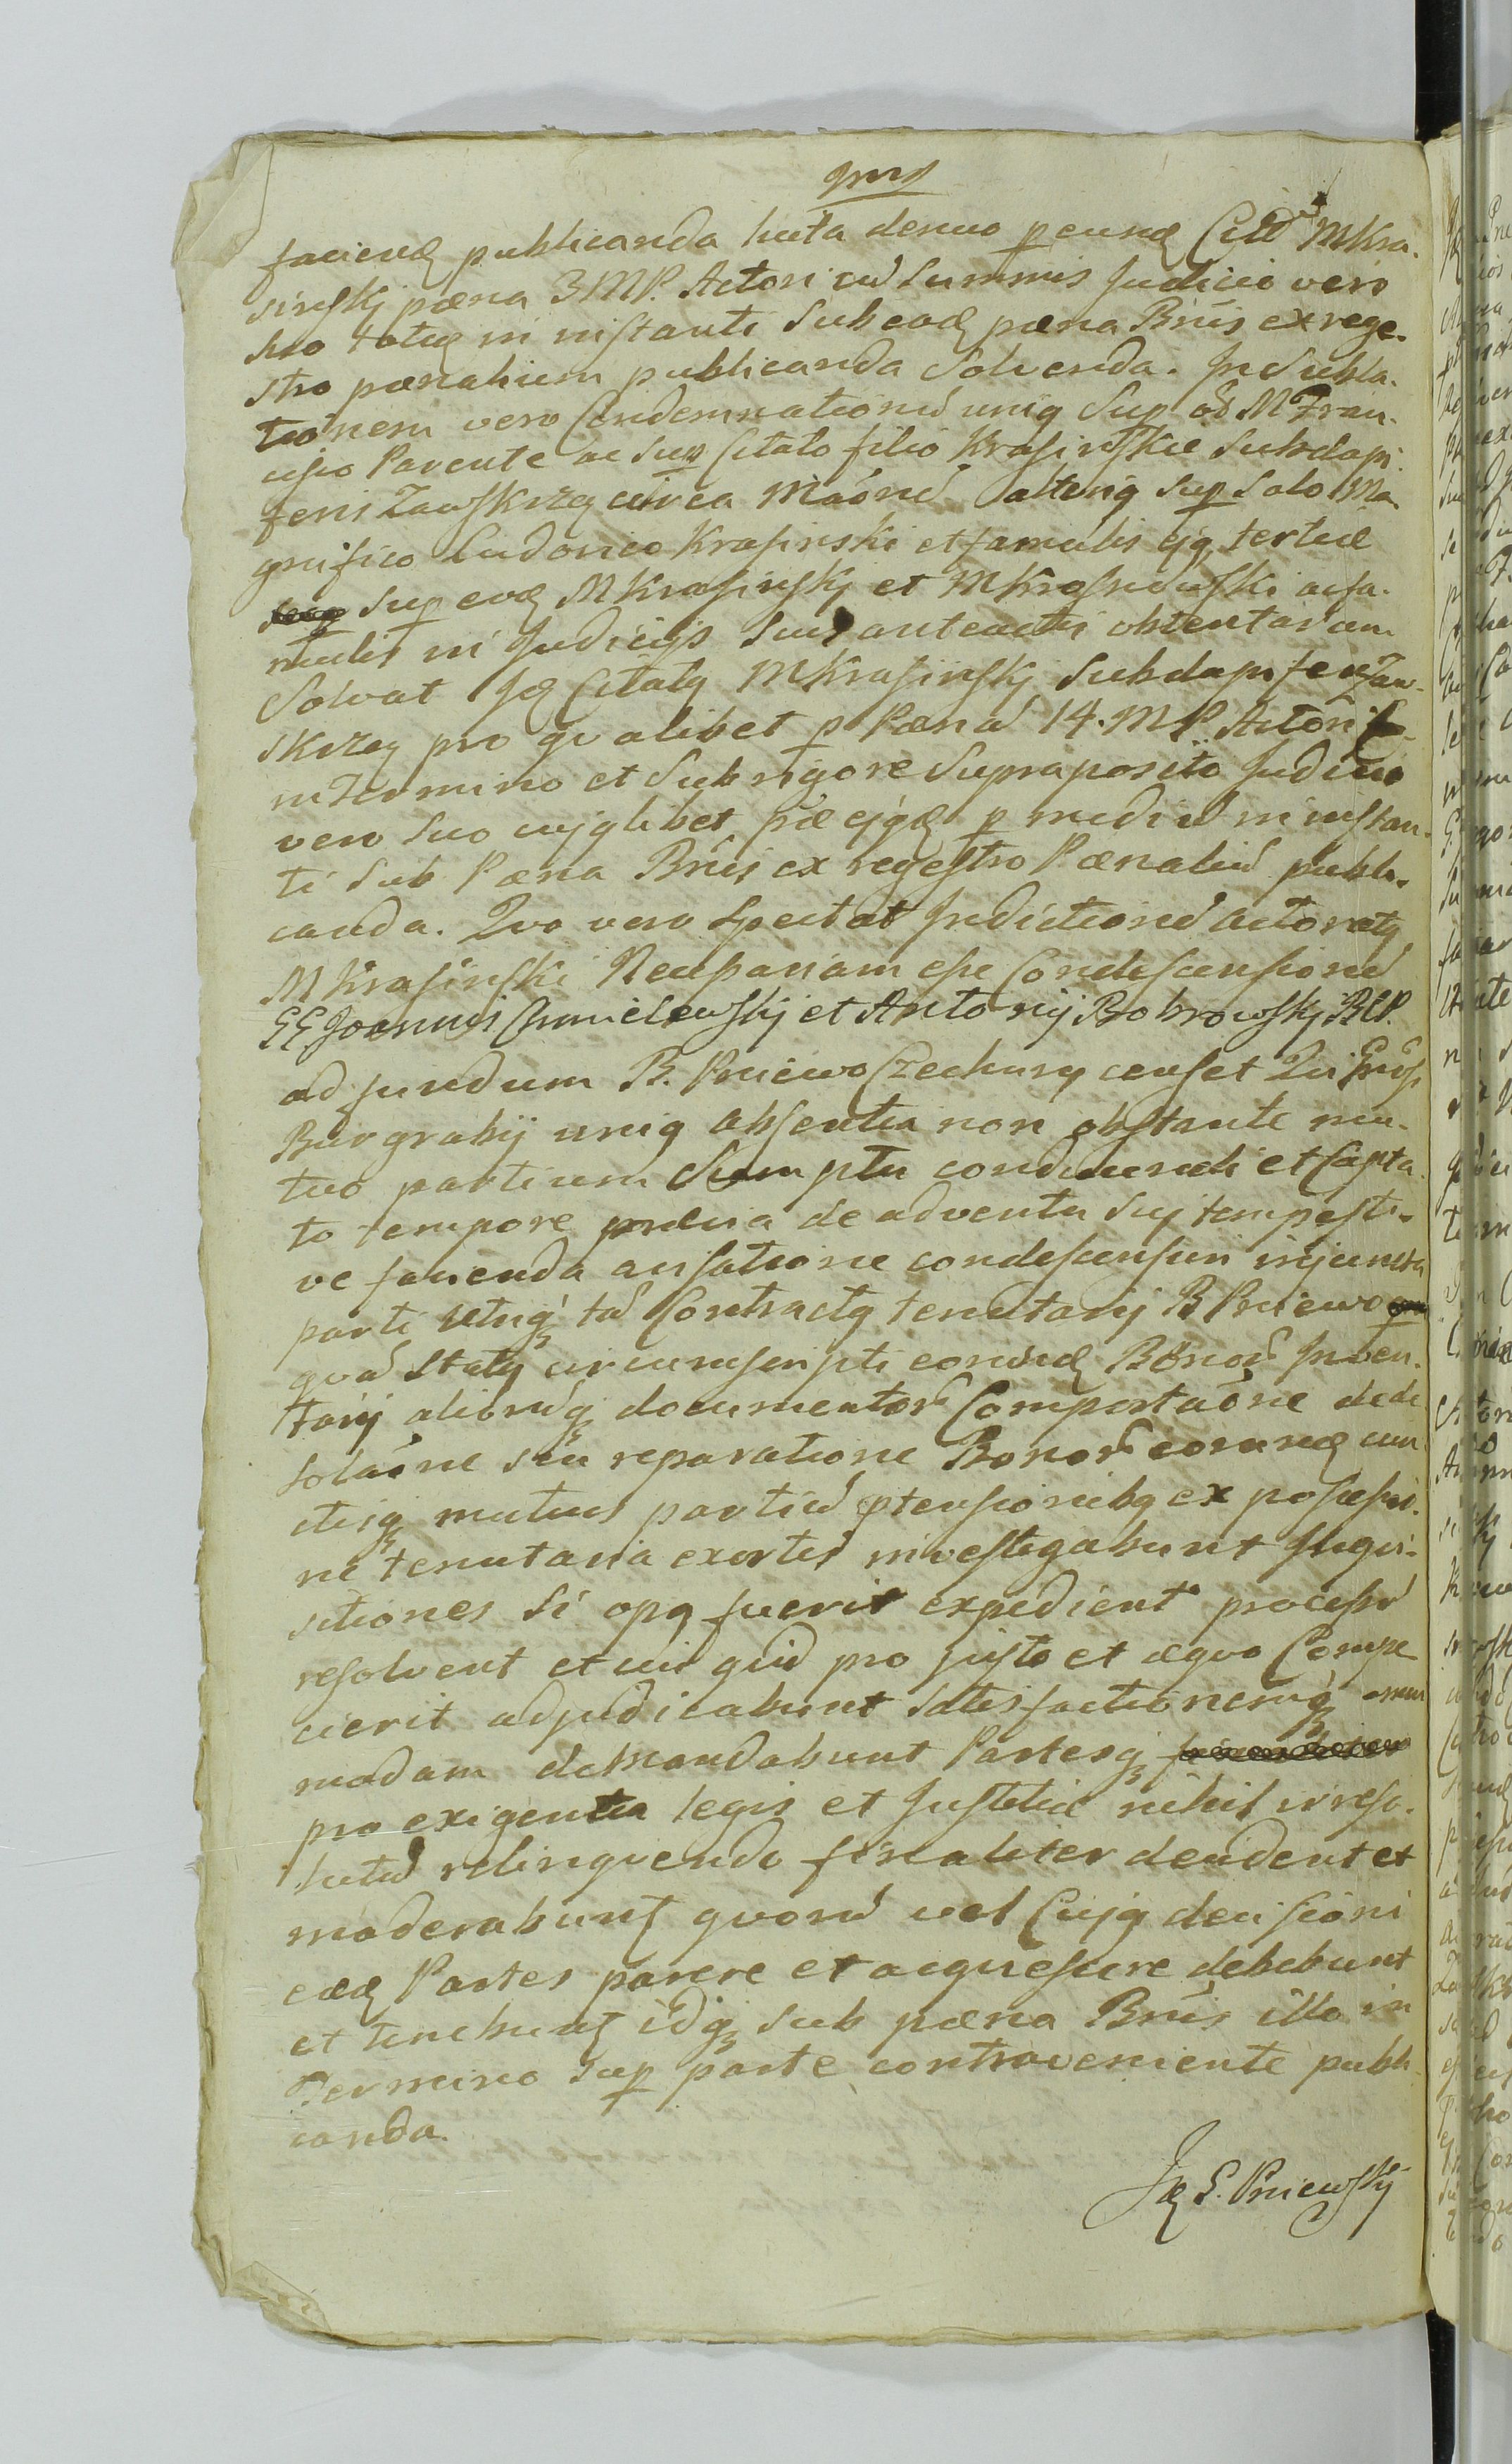 faciendꝫ publicanda luita denuo p eundꝫ Citd M Kra-
sinskj pæna 3 MP. Actori cū Summis Judicio vero
suo totieꝫ in instanti Sub eadꝫ pæna Bnis ex rege-
stro pœnalium publicanda Solvenda. In Subla-
tionem vero Condemnationū uniꝗ Sup oð M Fran-
cisco Parente ac Sup Citato filio Krasinskie Subdapi-
feris Zawskrzeꝗ circa Māonē alteriꝗ Sup Solo Ma-
gnifico Ludovico Krasinski et famulis ejꝗ tertiæ
Sup eodꝫ M Krasinskj et M Krasnodębski ac fa-
mulis in Judicijs Suis anteactis obtentarum
Solvat Idꝫ Citatꝗ M Krasinskj Subdapifer Zaw-
skrzeꝗ pro qvalibet p Pænā 14. MP. Actori
in Termino et Sub rigore Supraposito Judicio
vero Suo cujꝗlibet pæ ejꝗdꝫ p mediū in instan-
ti Sub Pæna Bnis ex regestro Pænaliū publi-
canda. Qvo vero Spectat Indictionē actoratꝗ
M Krasinski Neupariam esse Condescensionē
GG Joannis Chmielewskj et Antonij Bobrowskj BCP.
ad fundum B. Pniewo Czechury censet Qui Gnosi
Burgrabij uniꝗ absentia non obstante mu-
tuo partium Sumptu conducendi et Capta-
to tempore prævia de adventu Suj tempesti-
ve facienda avisatione condescensuri injuncta
parti utriꝗꝫ tā Contractꝗ tenutarij B Pniewo
qvā Statꝗ circumscripti eorundꝫ Bonor Inven-
tarij aliorūꝗꝫ documentor Comportaōne de de-
solāone seu reparatione Bonor eorundꝫ cun-
ctisꝗꝫ mutuis partiū ptensionibꝗ ex possessio-
ne tenutaria exortis investigabunt Inqvi-
sitiones Si opꝗ fuerit expedient processū
resolvent et cui qvid pro justo et æqvo Compe-
cierit adjudicabunt Satisfactionemꝗꝫ omni-
modam demandabunt Partesꝗꝫ
pro exigentia legis et Justitiæ nihil irreso-
lutū relinqvendo finaliter decident et
moderabunt qvorū vel Cujꝗ decisioni
eædꝫ Partes parere et acqviescere debebunt
et tenebunt idꝗꝫ Sub pæna Bnis illo in
Termino Sup parte contraveniente publi-
canda.
Idꝫ S. Pniewskij